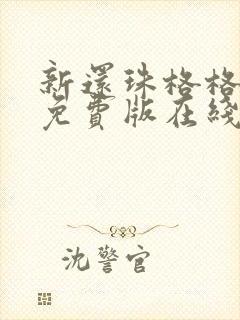 新還珠格格
免費版在綫
沈警官